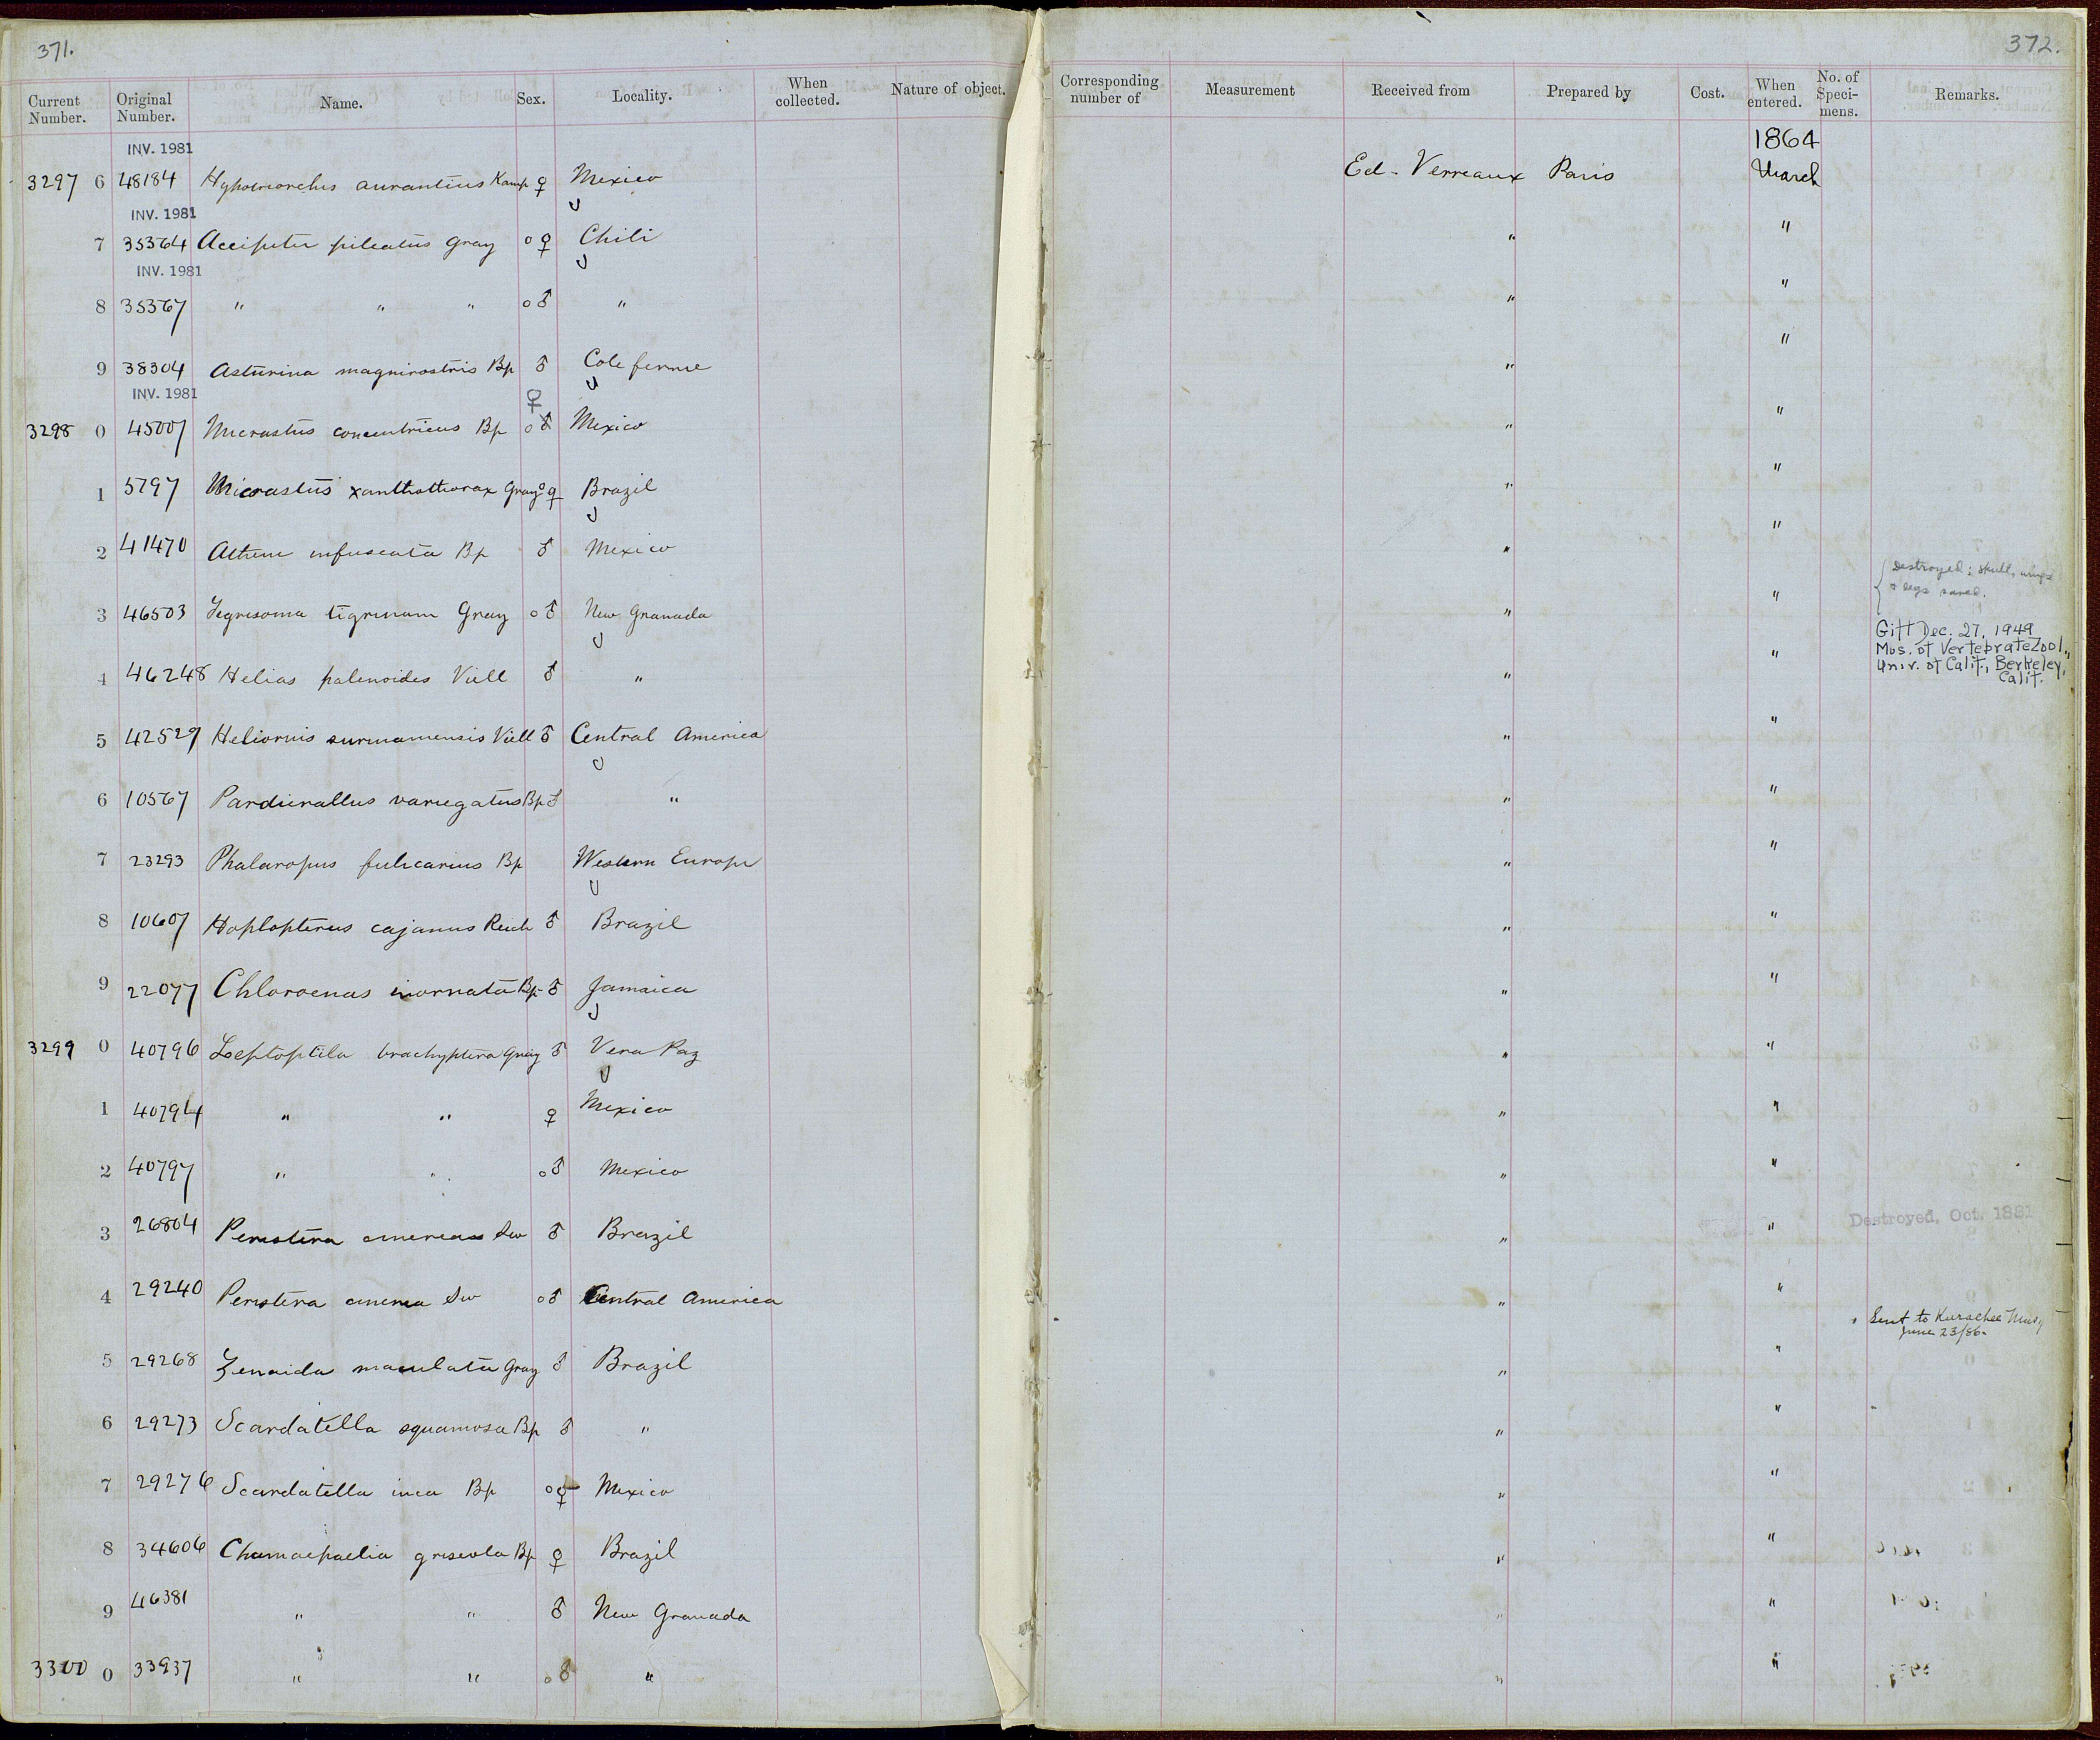 371.
372.
Current Number. Original Number. Name. Sex. Locality. When collected. Nature of object. Corresponding number of Measurement Received from Prepared by Cost. When entered. No. of Specimens. Remarks.
INV. 1981 1864
3297 6 48184 Hypotriorchis aurantius Kaup ♀ Mexico Ed. Verreaux Paris March
INV. 1981
7 35364 Accipiter pileatus Gray o ♀ Chili " "
INV. 1981
8 35367 " " " o ♂ " " "
9 38304 Asturina magnirostris Bp ♂ Cote ferme " "
INV. 1981 ♀
3298 0 45007 Micrastus concentricus Bp o ♂ Mexico " "
1 5797 Micrastus xanthothorax Gray o ♀ Brazil " "
2 41470 Athene infuscata Bp ♂ Mexico " "
3 46503 Tigrisoma tigrinum Gray o ♂ New Granada " "
Destroyed; skull, wings
& legs saved.
4 46248 Helias phalenoides Viell ♂ " " "
Gift Dec. 27, 1949
Mus. of Vertebrate Zool.,
Univ. of Calif., Berkeley,
Calif.
5 42529 Heliornis surinamensis Viell ♂ Central America " "
6 10567 Pardirallus variegatus Bp ♂ " " "
7 23293 Phalaropus fulicarius Bp Western Europe " "
8 10607 Hoplopterus cajanus Reich ♂ Brazil " "
9 22077 Chloroenas inornata Bp ♂ Jamaica " "
3299 0 40796 Leptoptila brachyptera Gray ♂ Vera Paz " "
1 40794 " " ♀ Mexico " "
2 40797 " " o ♂ Mexico " "
3 26804 Peristera cinerea Sw ♂ Brazil " " Destroyed, Oct. 1881
4 29240 Peristera cinerea Sw o ♂ Central America " "
Sent to Kurachee Mus
June 23/86
5 29268 Zenaida maculata Gray ♂ Brazil " "
6 29273 Scardafella squamosa Bp ♂ " " "
7 29276 Scardafella inca Bp o ♀ Mexico " "
8 34606 Chamaepaelia griseola Bp ♀ Brazil " "
9 46381 " " ♂ New Granada " "
3300 0 33937 " " o ♂ " " "